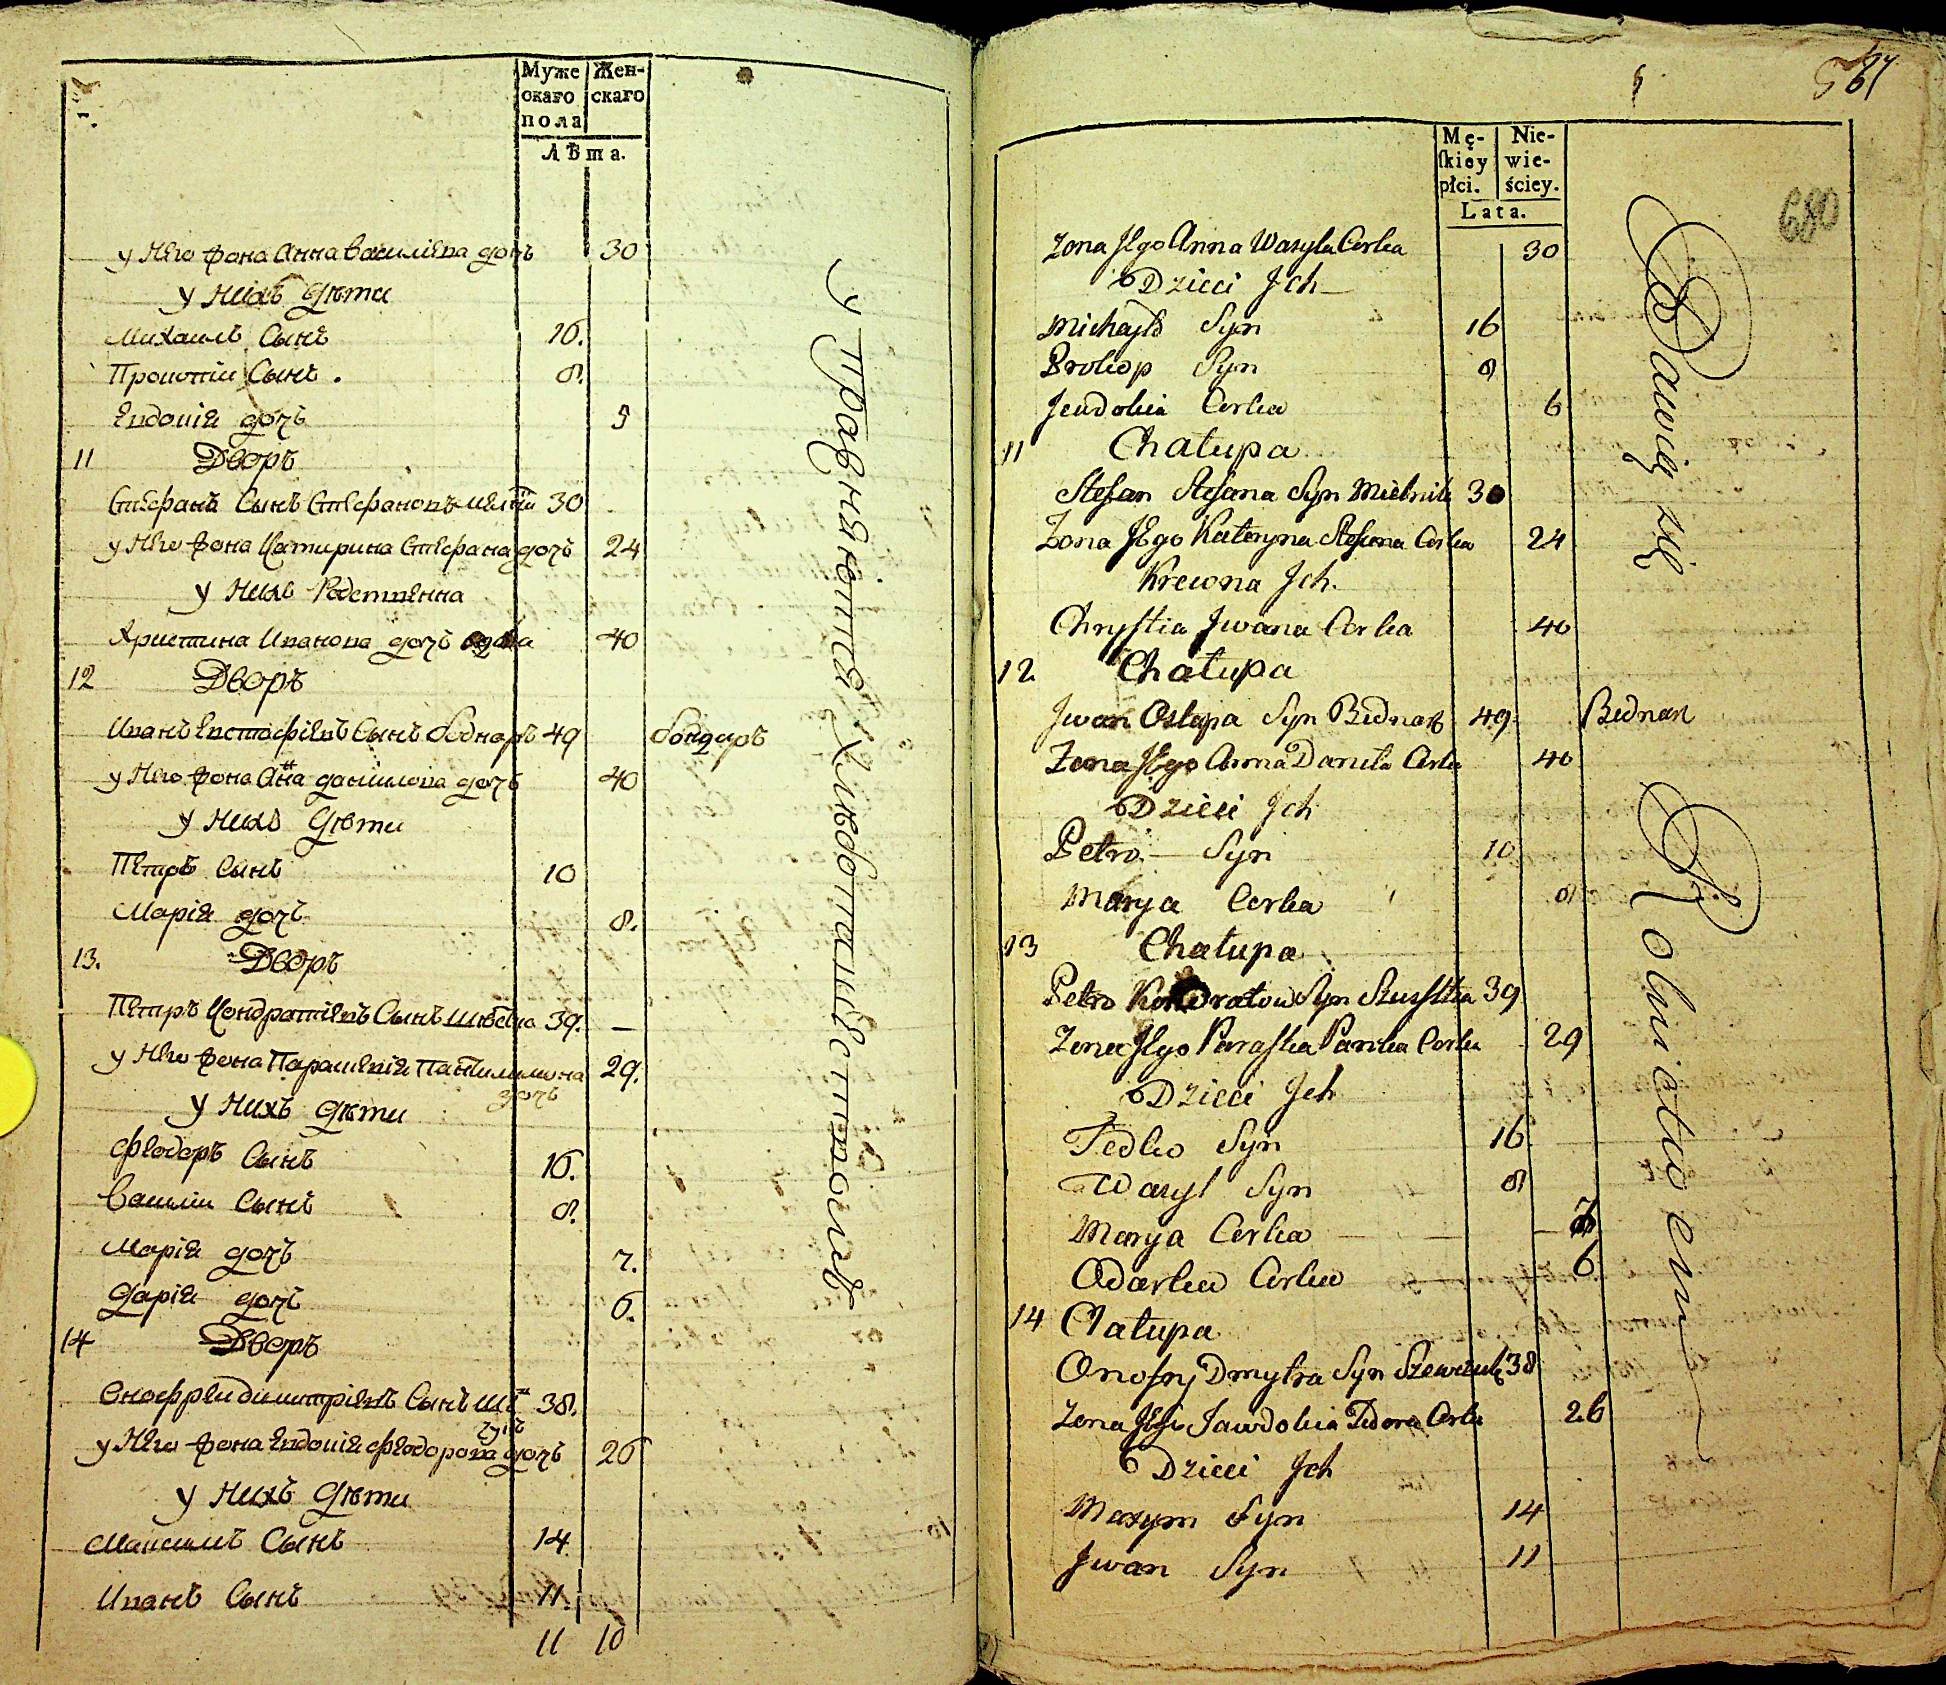 Муже
скаго
пола
Жен-
скаго
Лѣта.
у Него жена Анна Василіева дочь 30
у Нихъ Дѣти
Михаилъ Сынъ 16.
Прокопій Сынъ. 8.
Евдокія дочь 5
11 Дворъ
Стефанъ Сынъ Стефановъ 30
у Него жена Катирина Стефана дочь 24
у Нихъ
Христина Иванова дочь вдова 40
12 Дворъ
Иванъ Евстафіевъ Сынъ боднаръ 49 бондаръ
у Него жена Анна данилова дочь 40
у Нихъ Дѣти
Петръ Сынъ 10
Марія дочь 8.
13. Дворъ
Петръ Кондратіевъ Сынъ 39. —
у Него жена Параскевія Пантилимона 29.
дочь
у Нихъ дѣти
Феодоръ Сынъ 16.
Василій Сынъ 8.
Марія дочь 7.
Дарія дочь 6.
14 Дворъ
Онофрей Димитріевъ Сынъ Шев 38.
чукъ
у Него жена Евдокія Феодорова дочь 26
у Нихъ Дѣти
Максимъ Сынъ 14
Иванъ Сынъ 11.
11 10
упражняются Хлибопашествомъ
680
Mę-
ſkiey
płci.
Nie-
wie-
ściey.
Lata.
Zona Jego Anna Wasyla Corka 30
Dzieci Jch
Michajło Syn 16
Prokop Syn 8
Jeudokia Corka 6
11 Chałupa
Stefan Stefana Syn Mielnik 30
Zona Jego Kateryna Stefana Corka 24
Krewna Jch.
Chrystia Jwana Corka 40
12 Chałupa
Jwan Ostapa Syn Bednarz 49 Bednarz
Zona Jego Anna Daniła Corka 40
Dzieci Jch
Petro Syn 10
Marya Corka 8
13 Chałupa
Petro Kondratow Syn 39
Zona Jego Paraska Panka Corka 29
Dzieci Jch
Fedko Syn 16
Wasyl Syn 8
Marya Corka 7
Odarka Corka 6
14 Chałupa
Onofry Dmytra Syn Szewczuk 38
Zona Jego Jawdokia Fedora Corka 26
Dzieci Jch
Maxym Syn 14
Jwan Syn 11
Bawią się Rolnictwem